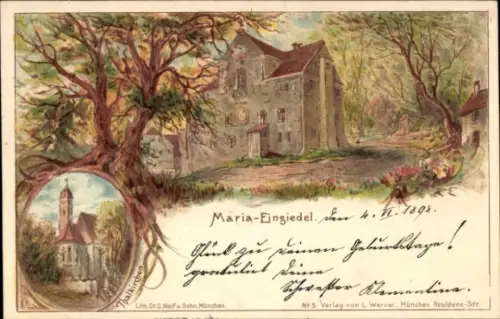 Maria-Einsiedel.
den 4. VI. 1898.
Glück zu Deinem Geburtstage!
gratuliert Deine
Schwester Klementine.
Thalkirchen
Lith. Dr. C. Wolf u. Sohn, München.
No 5. Verlag von L. Werner, München Residenz-Str.